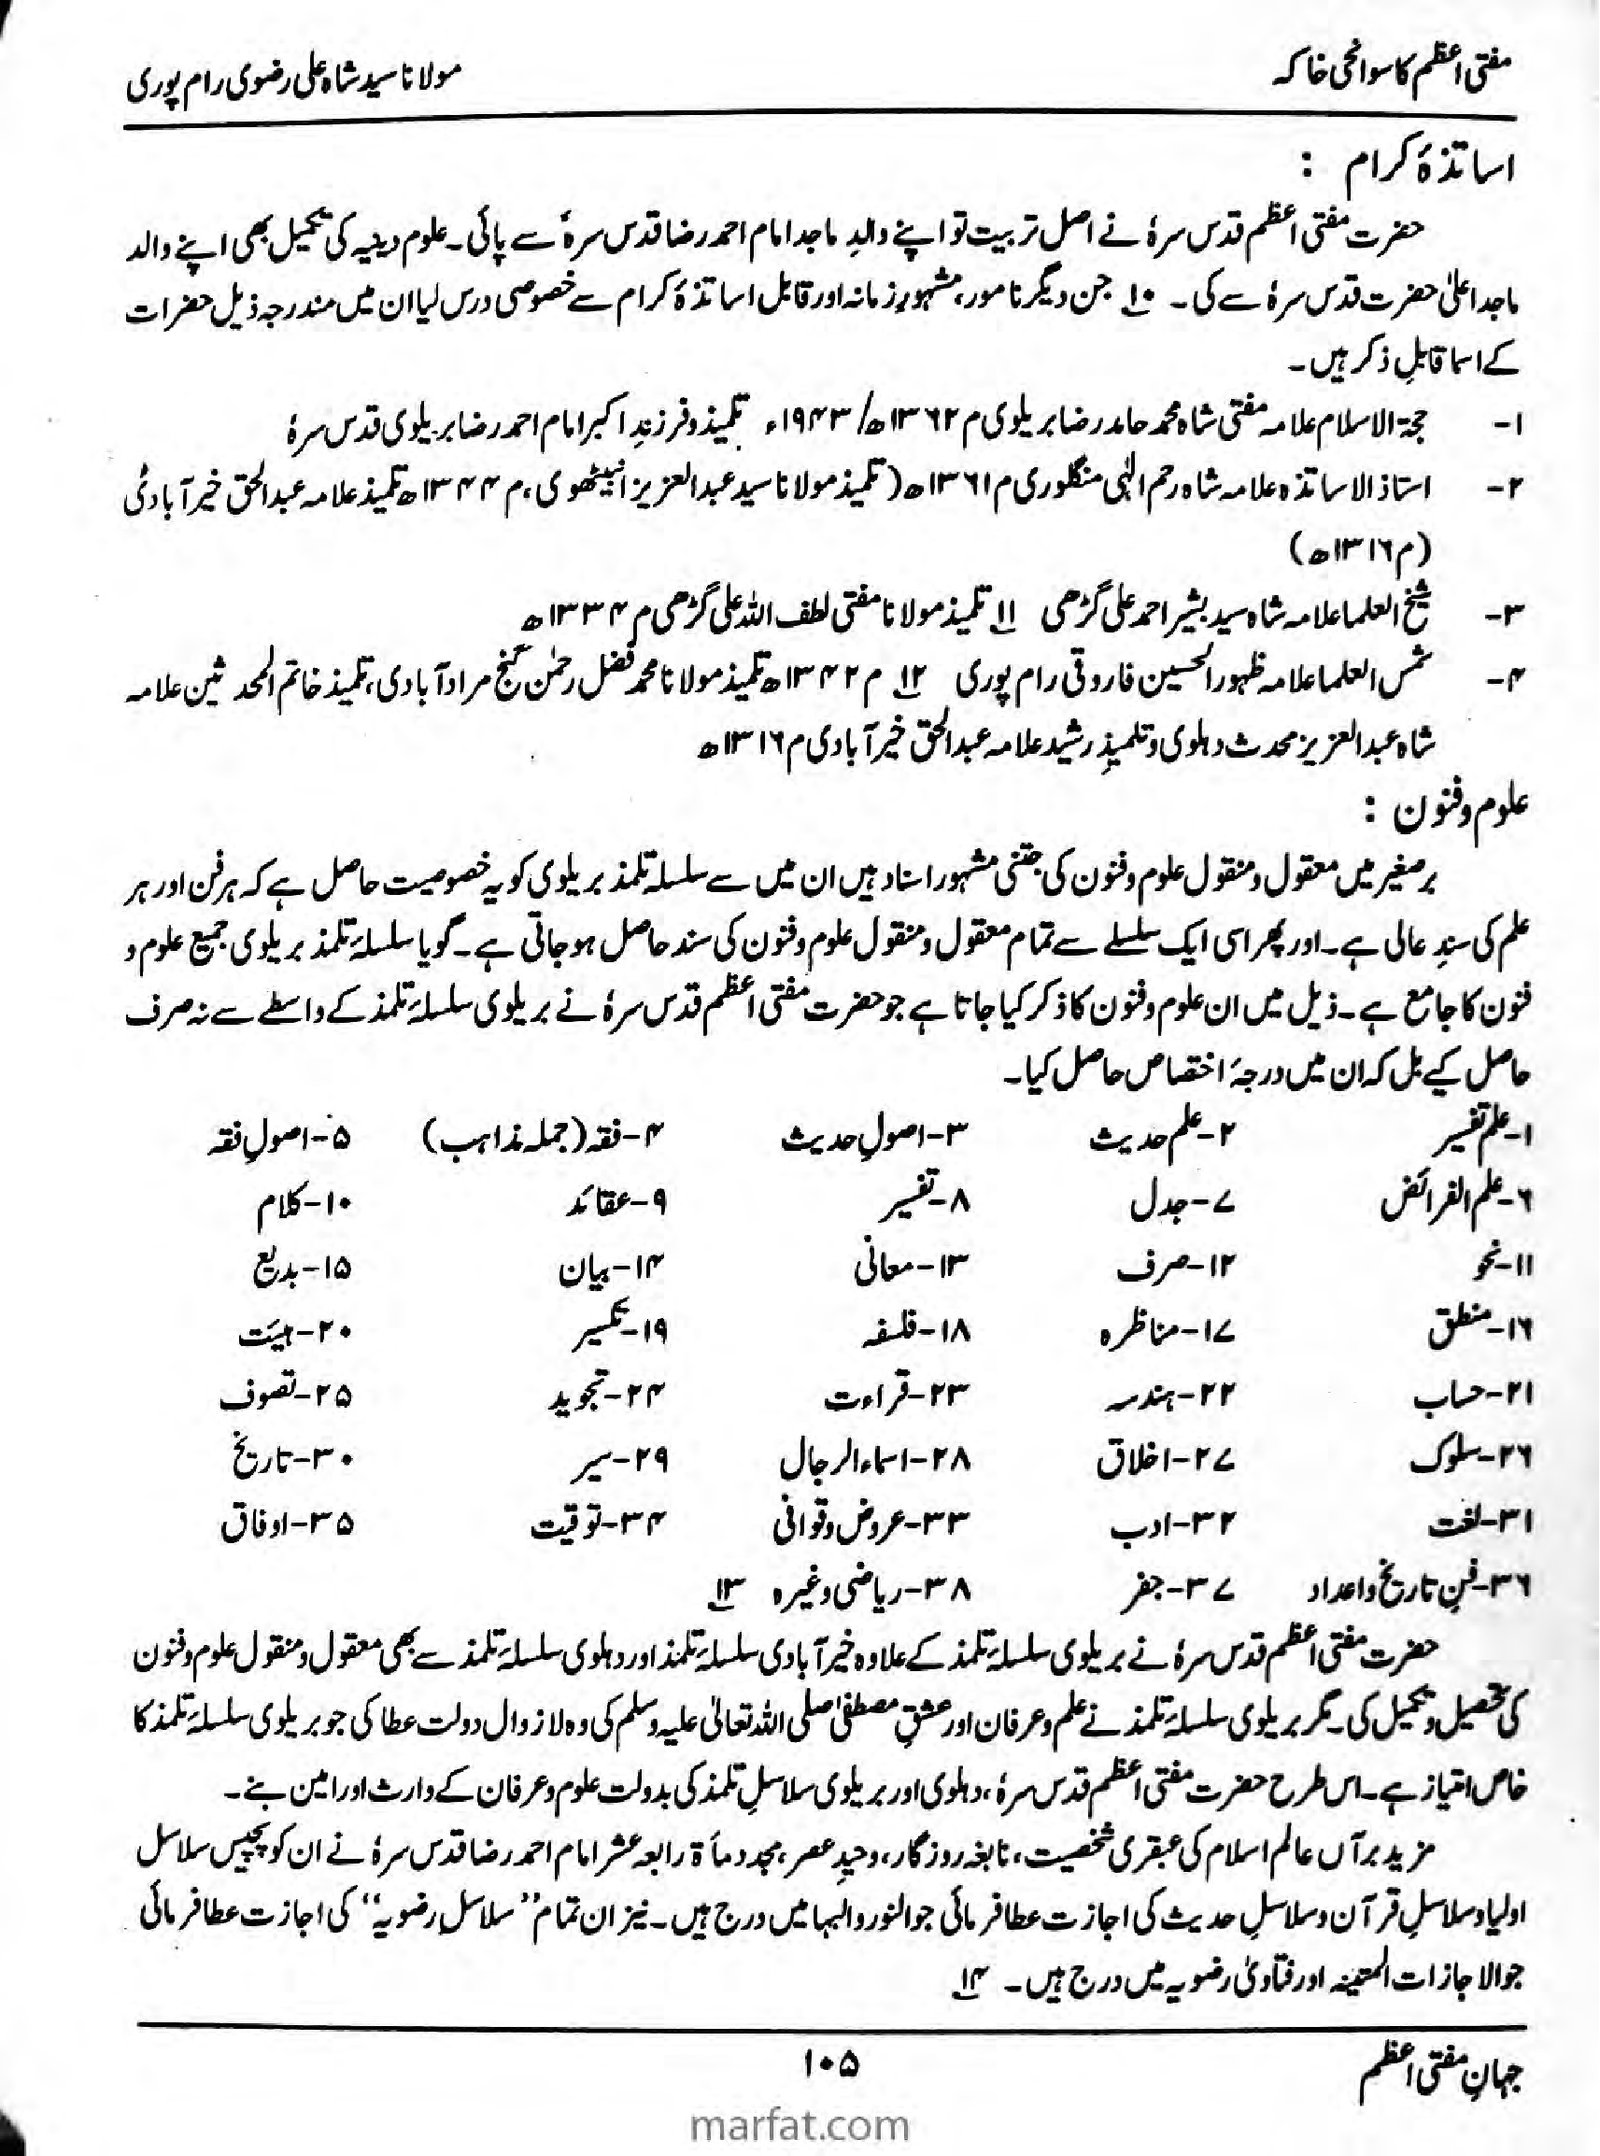 مفتی اعظم کا سوانحی خاکہ
مولانا سید شاہ علی رضوی رام پوری
اساتذۂ کرام :
حضرت مفتی اعظم قدس سرہٗ نے اصل تربیت تو اپنے والدِ ماجد امام احمد رضا قدس سرہٗ سے پائی۔ علوم دینیہ کی تکمیل بھی اپنے والد
ماجد اعلیٰ حضرت قدس سرہٗ سے کی۔ ۱۰ جن دیگر نامور، مشہورِ زمانہ اور قابل اساتذۂ کرام سے خصوصی درس لیا ان میں مندرجہ ذیل حضرات
کے اسما قابلِ ذکر ہیں۔
۱- حجۃ الاسلام علامہ مفتی شاہ محمد حامد رضا بریلوی م ۱۳۶۲ھ/ ۱۹۴۳ء تلمیذ و فرزندِ اکبر امام احمد رضا بریلوی قدس سرہٗ
۲- استاذ الاساتذہ علامہ شاہ رحم الٰہی منگلوری م ۱۳۶۱ھ (تلمیذ مولانا سید عبد العزیز انبیٹھوی، م ۱۳۴۴ھ تلمیذ علامہ عبد الحق خیرآبادیٔ
(م ۱۳۱۶ھ)
۳- شیخ العلما علامہ شاہ سید بشیر احمد علی گڑھی ۱۱ تلمیذ مولانا مفتی لطف اللہ علی گڑھی م ۱۳۳۴ھ
۴- شمس العلما علامہ ظہور الحسین فاروقی رام پوری ۱۲ م ۱۳۴۲ھ تلمیذ مولانا محمد فضل رحمٰن گنج مرادآبادی، تلمیذ خاتم المحدثین علامہ
شاہ عبد العزیز محدث دہلوی و تلمیذِ رشید علامہ عبد الحق خیرآبادی م ۱۳۱۶ھ
علوم و فنون :
برصغیر میں معقول و منقول علوم و فنون کی جتنی مشہور اسناد ہیں ان میں سے سلسلہ تلمذ بریلوی کو یہ خصوصیت حاصل ہے کہ ہر فن اور ہر
علم کی سندِ عالی ہے۔ اور پھر اسی ایک سلسلے سے تمام معقول و منقول علوم و فنون کی سند حاصل ہو جاتی ہے۔ گویا سلسلۂ تلمذ بریلوی جمیع علوم و
فنون کا جامع ہے۔ ذیل میں ان علوم و فنون کا ذکر کیا جاتا ہے جو حضرت مفتی اعظم قدس سرہٗ نے بریلوی سلسلۂ تلمذ کے واسطے سے نہ صرف
حاصل کیے بل کہ ان میں درجۂ اختصاص حاصل کیا۔
۱-علم تفسیر ۲-علم حدیث ۳-اصولِ حدیث ۴-فقہ (جملہ مذاہب) ۵-اصولِ فقہ
۶-علم الفرائض ۷-جدل ۸-تفسیر ۹-عقائد ۱۰-کلام
۱۱-نحو ۱۲-صرف ۱۳-معانی ۱۴-بیان ۱۵-بدیع
۱۶-منطق ۱۷-مناظرہ ۱۸-فلسفہ ۱۹-تکسیر ۲۰-ہیئت
۲۱-حساب ۲۲-ہندسہ ۲۳-قراءت ۲۴-تجوید ۲۵-تصوف
۲۶-سلوک ۲۷-اخلاق ۲۸-اسماء الرجال ۲۹-سیر ۳۰-تاریخ
۳۱-لغت ۳۲-ادب ۳۳-عروض و قوافی ۳۴-توقیت ۳۵-اوفاق
۳۶-فنِ تاریخ و اعداد ۳۷-جفر ۳۸-ریاضی وغیرہ ۱۳
حضرت مفتی اعظم قدس سرہٗ نے بریلوی سلسلۂ تلمذ کے علاوہ خیرآبادی سلسلۂ تلمذ اور دہلوی سلسلۂ تلمذ سے بھی معقول و منقول علوم و فنون
کی تحصیل و تکمیل کی۔ مگر بریلوی سلسلۂ تلمذ نے علم و عرفان اور عشقِ مصطفیٰ صلی اللہ تعالیٰ علیہ وسلم کی وہ لازوال دولت عطا کی جو بریلوی سلسلۂ تلمذ کا
خاص امتیاز ہے۔ اس طرح حضرت مفتی اعظم قدس سرہٗ، دہلوی اور بریلوی سلاسلِ تلمذ کی بدولت علوم و عرفان کے وارث اور امین بنے۔
مزید برآں عالم اسلام کی عبقری شخصیت، نابغہ روزگار، وحیدِ عصر، مجدد مأۃ رابعہ عشر امام احمد رضا قدس سرہٗ نے ان کو پچیس سلاسل
اولیا و سلاسلِ قرآن و سلاسلِ حدیث کی اجازت عطا فرمائی جو النور والبہا میں درج ہیں۔ نیز ان تمام ”سلاسلِ رضویہ“ کی اجازت عطا فرمائی
جو الاجازات المتینہ اور فتاویٰ رضویہ میں درج ہیں۔ ۱۴
جہانِ مفتی اعظم
۱۰۵
marfat.com